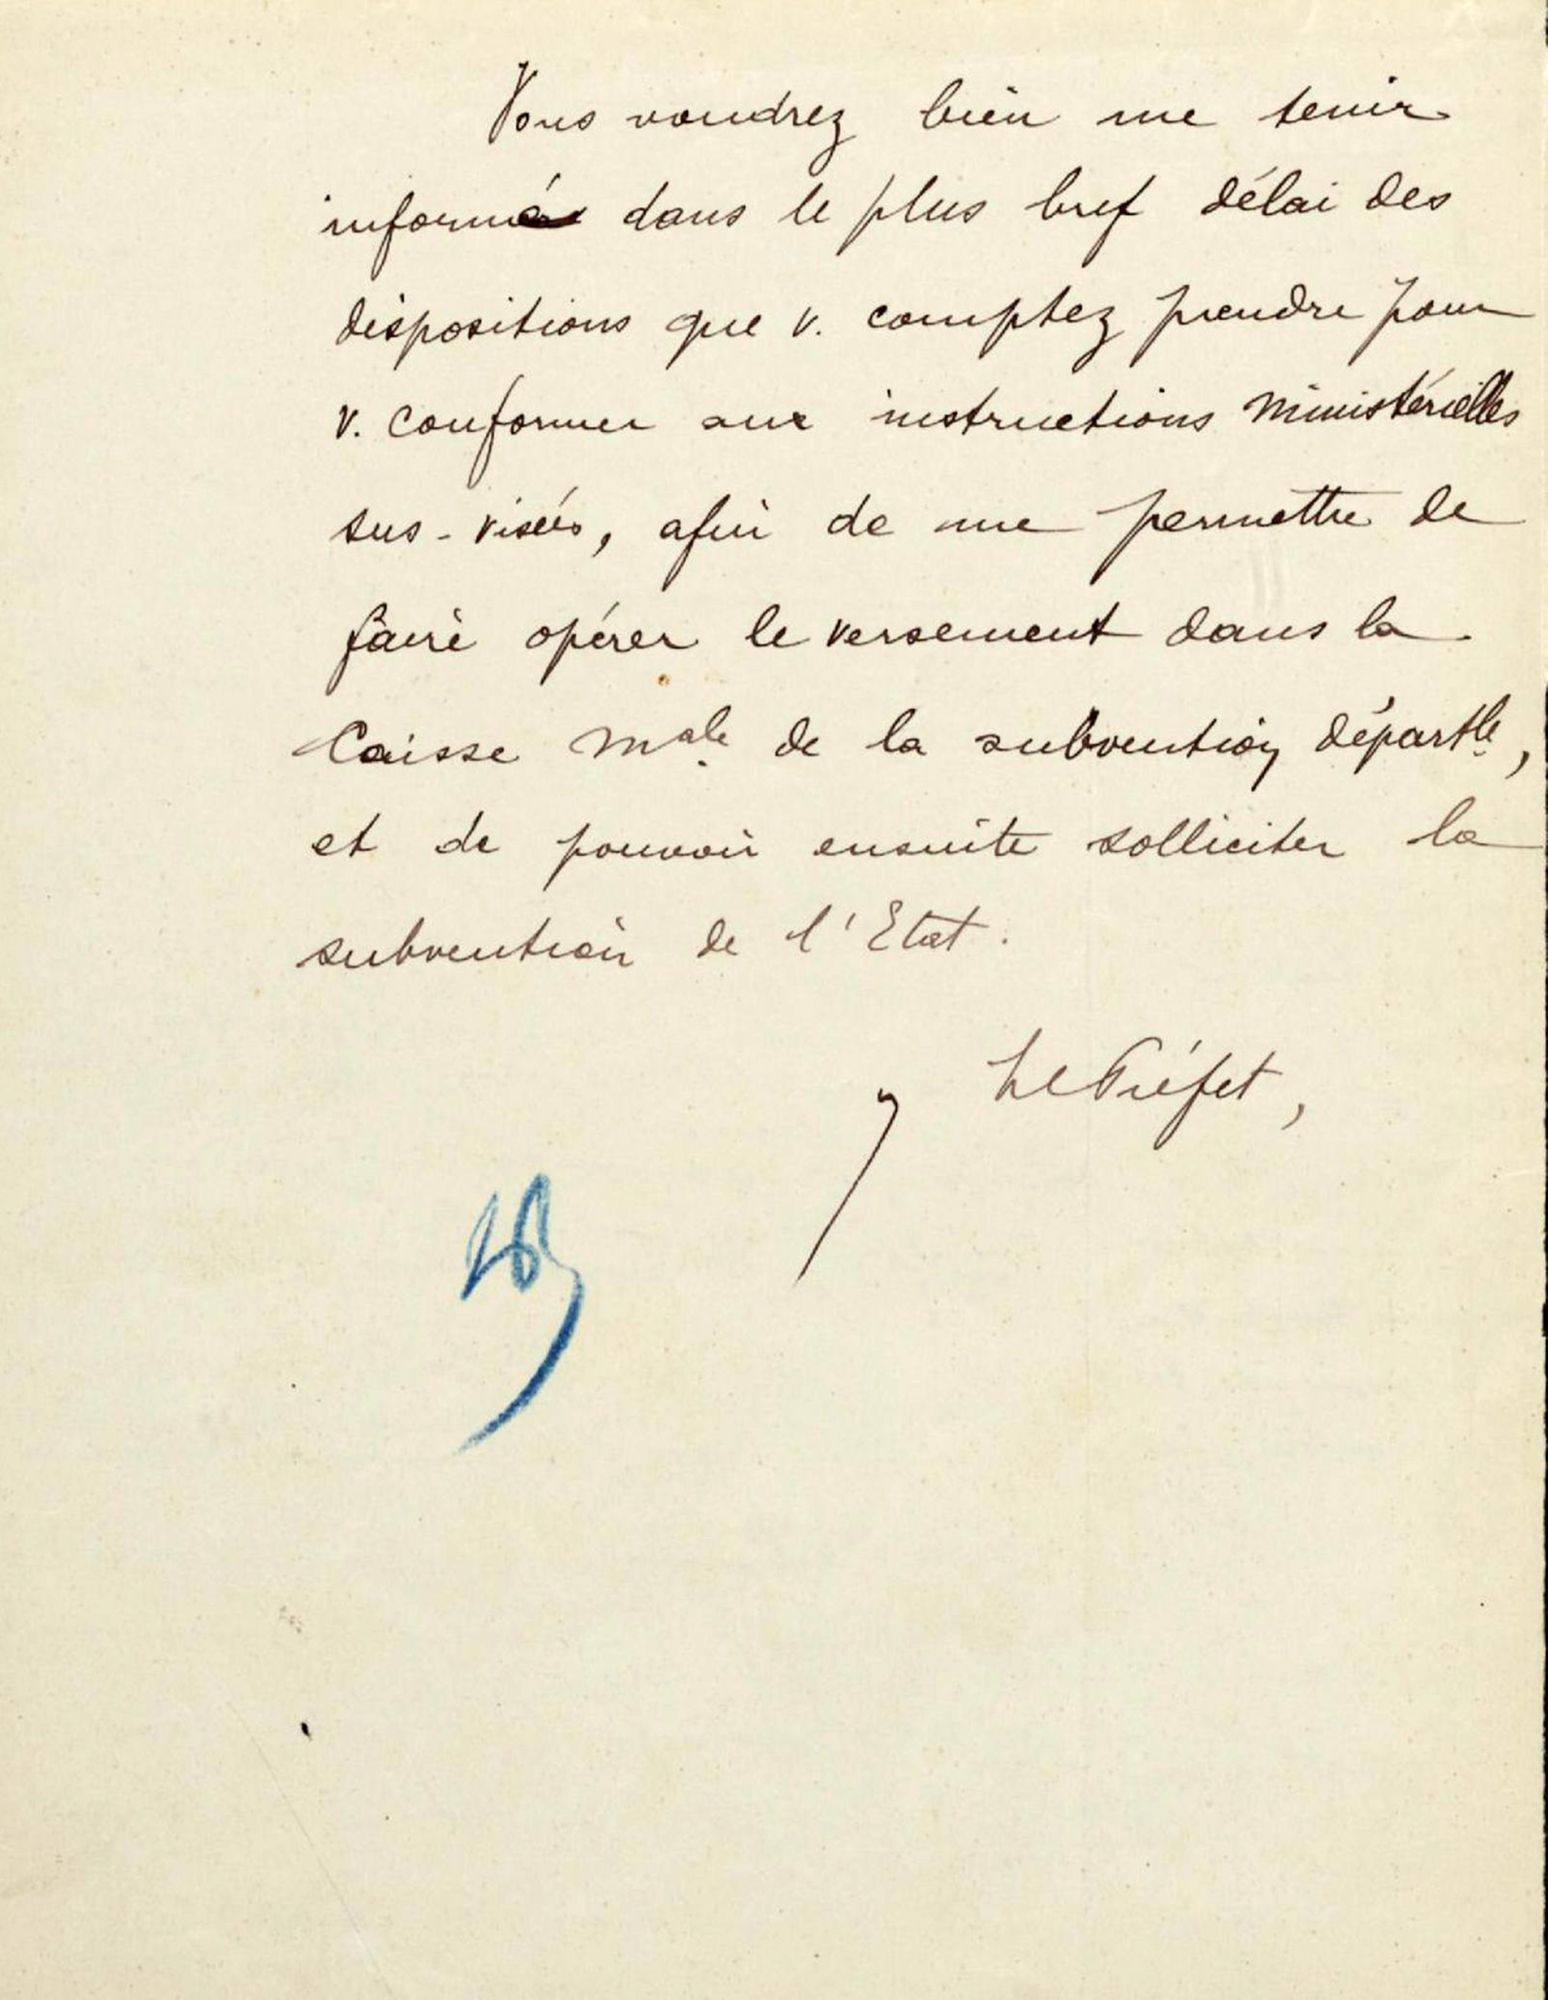 Vous voudrez bien me tenir
informé dans le plus bref délai des
dispositions que v. comptez prendre pour
v. conformer aux instructions ministérielles
sus-visées, afin de me permettre de
faire opérer le versement dans la
Caisse Male de la subvention départle,
et de pouvoir ensuite solliciter la
subvention de l'Etat.
Le Préfet,